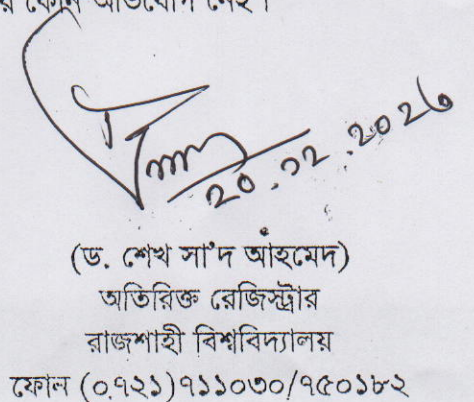 র কোন অভিযোগ নেই।
২০.১২.২০২৬
(ড. শেখ সা'দ আহমেদ)
অতিরিক্ত রেজিস্ট্রার
রাজশাহী বিশ্ববিদ্যালয়
ফোন (০৭২১)৭১১০৩০/৭৫০১৮২